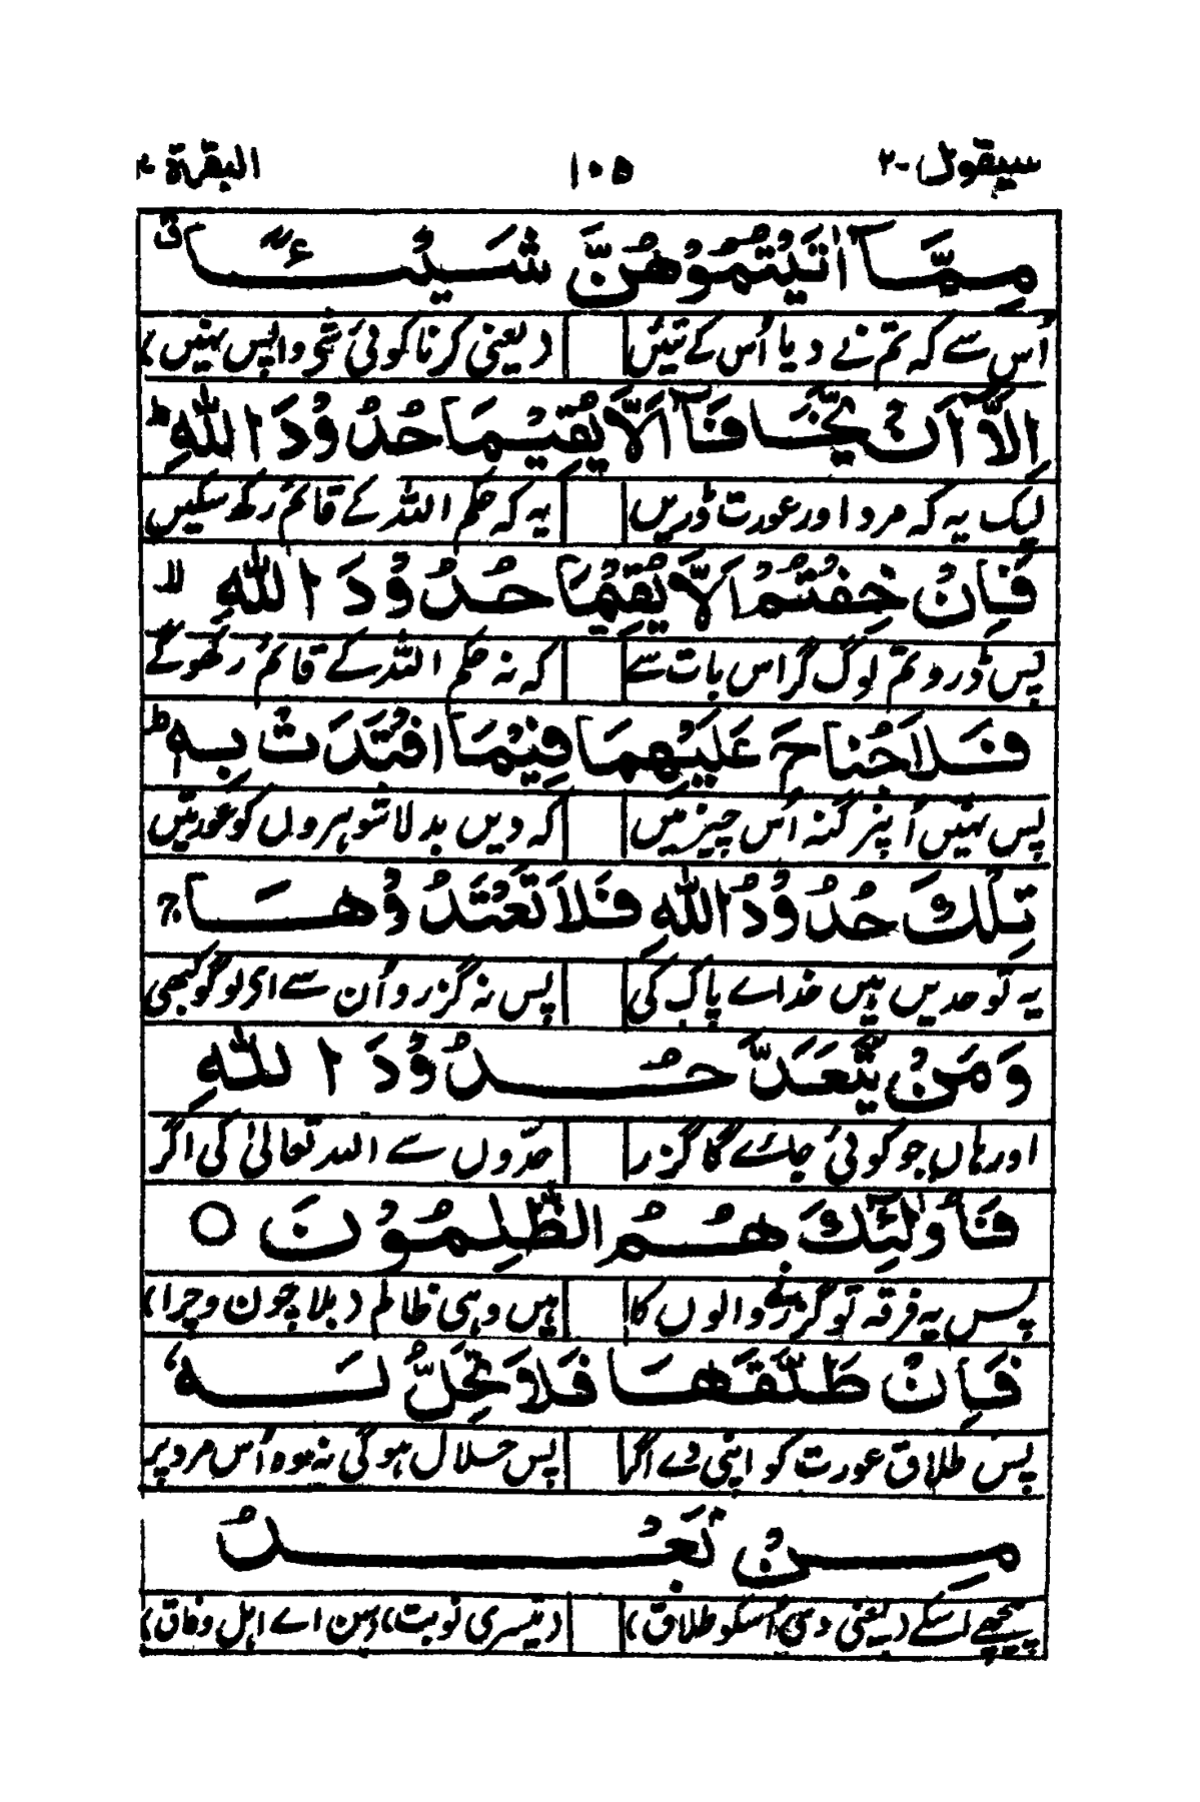 سیقول ۲- ۱۰۵ البقرۃ ۲
مِمَّآ اٰتَيْتُمُوْهُنَّ شَيْـــًٔا
اُس سے کہ تم نے دیا اُس کے تئیں (یعنی کرنا کوئی شی واپس نہیں)
اِلَّآ اَنْ يَّخَافَآ اَلَّا يُقِيْمَا حُدُوْدَ اللّٰهِ ط
لیک یہ کہ مرد اور عورت ڈریں یہ کہ حکم اللہ کے قائم رکھ سکیں
فَاِنْ خِفْتُمْ اَلَّا يُقِيْمَا حُدُوْدَ اللّٰهِ لا
پس ڈرو تم لوگ گر اس بات سے کہ نہ حکم اللہ کے قائم رکھو گے
فَلَا جُنَاحَ عَلَيْهِمَا فِيْمَا افْتَدَتْ بِهٖ ط
پس نہیں اُنپر گنہ اُس چیز میں کہ دیں بدلا شوہروں کو عورتیں
تِلْكَ حُدُوْدُ اللّٰهِ فَلَا تَعْتَدُوْهَا ج
یہ تو حدیں ہیں خداے پاک کی پس نہ گزرو اُن سے ای لوگو کبھی
وَمَنْ يَّتَعَدَّ حُدُوْدَ اللّٰهِ
اور ہاں جو کوئی جائے گا گزر حدّوں سے اللہ تعالیٰ کی اگر
فَاُولٰٓئِكَ هُمُ الظّٰلِمُوْنَ ○
پس یہ فرقہ تو گزرنے والوں کا ہیں وہی ظالم (بلا چون و چرا)
فَاِنْ طَلَّقَهَا فَلَا تَحِلُّ لَهٗ
پس طلاق عورت کو اپنی دے اگر پس حلال ہو گی نہ وہ اُس مرد پر
مِنْۢ بَعْدُ
پیچھے اسکے (یعنی دی اُسکو طلاق) (تیسری نوبت) سن اے اہل وفاق)